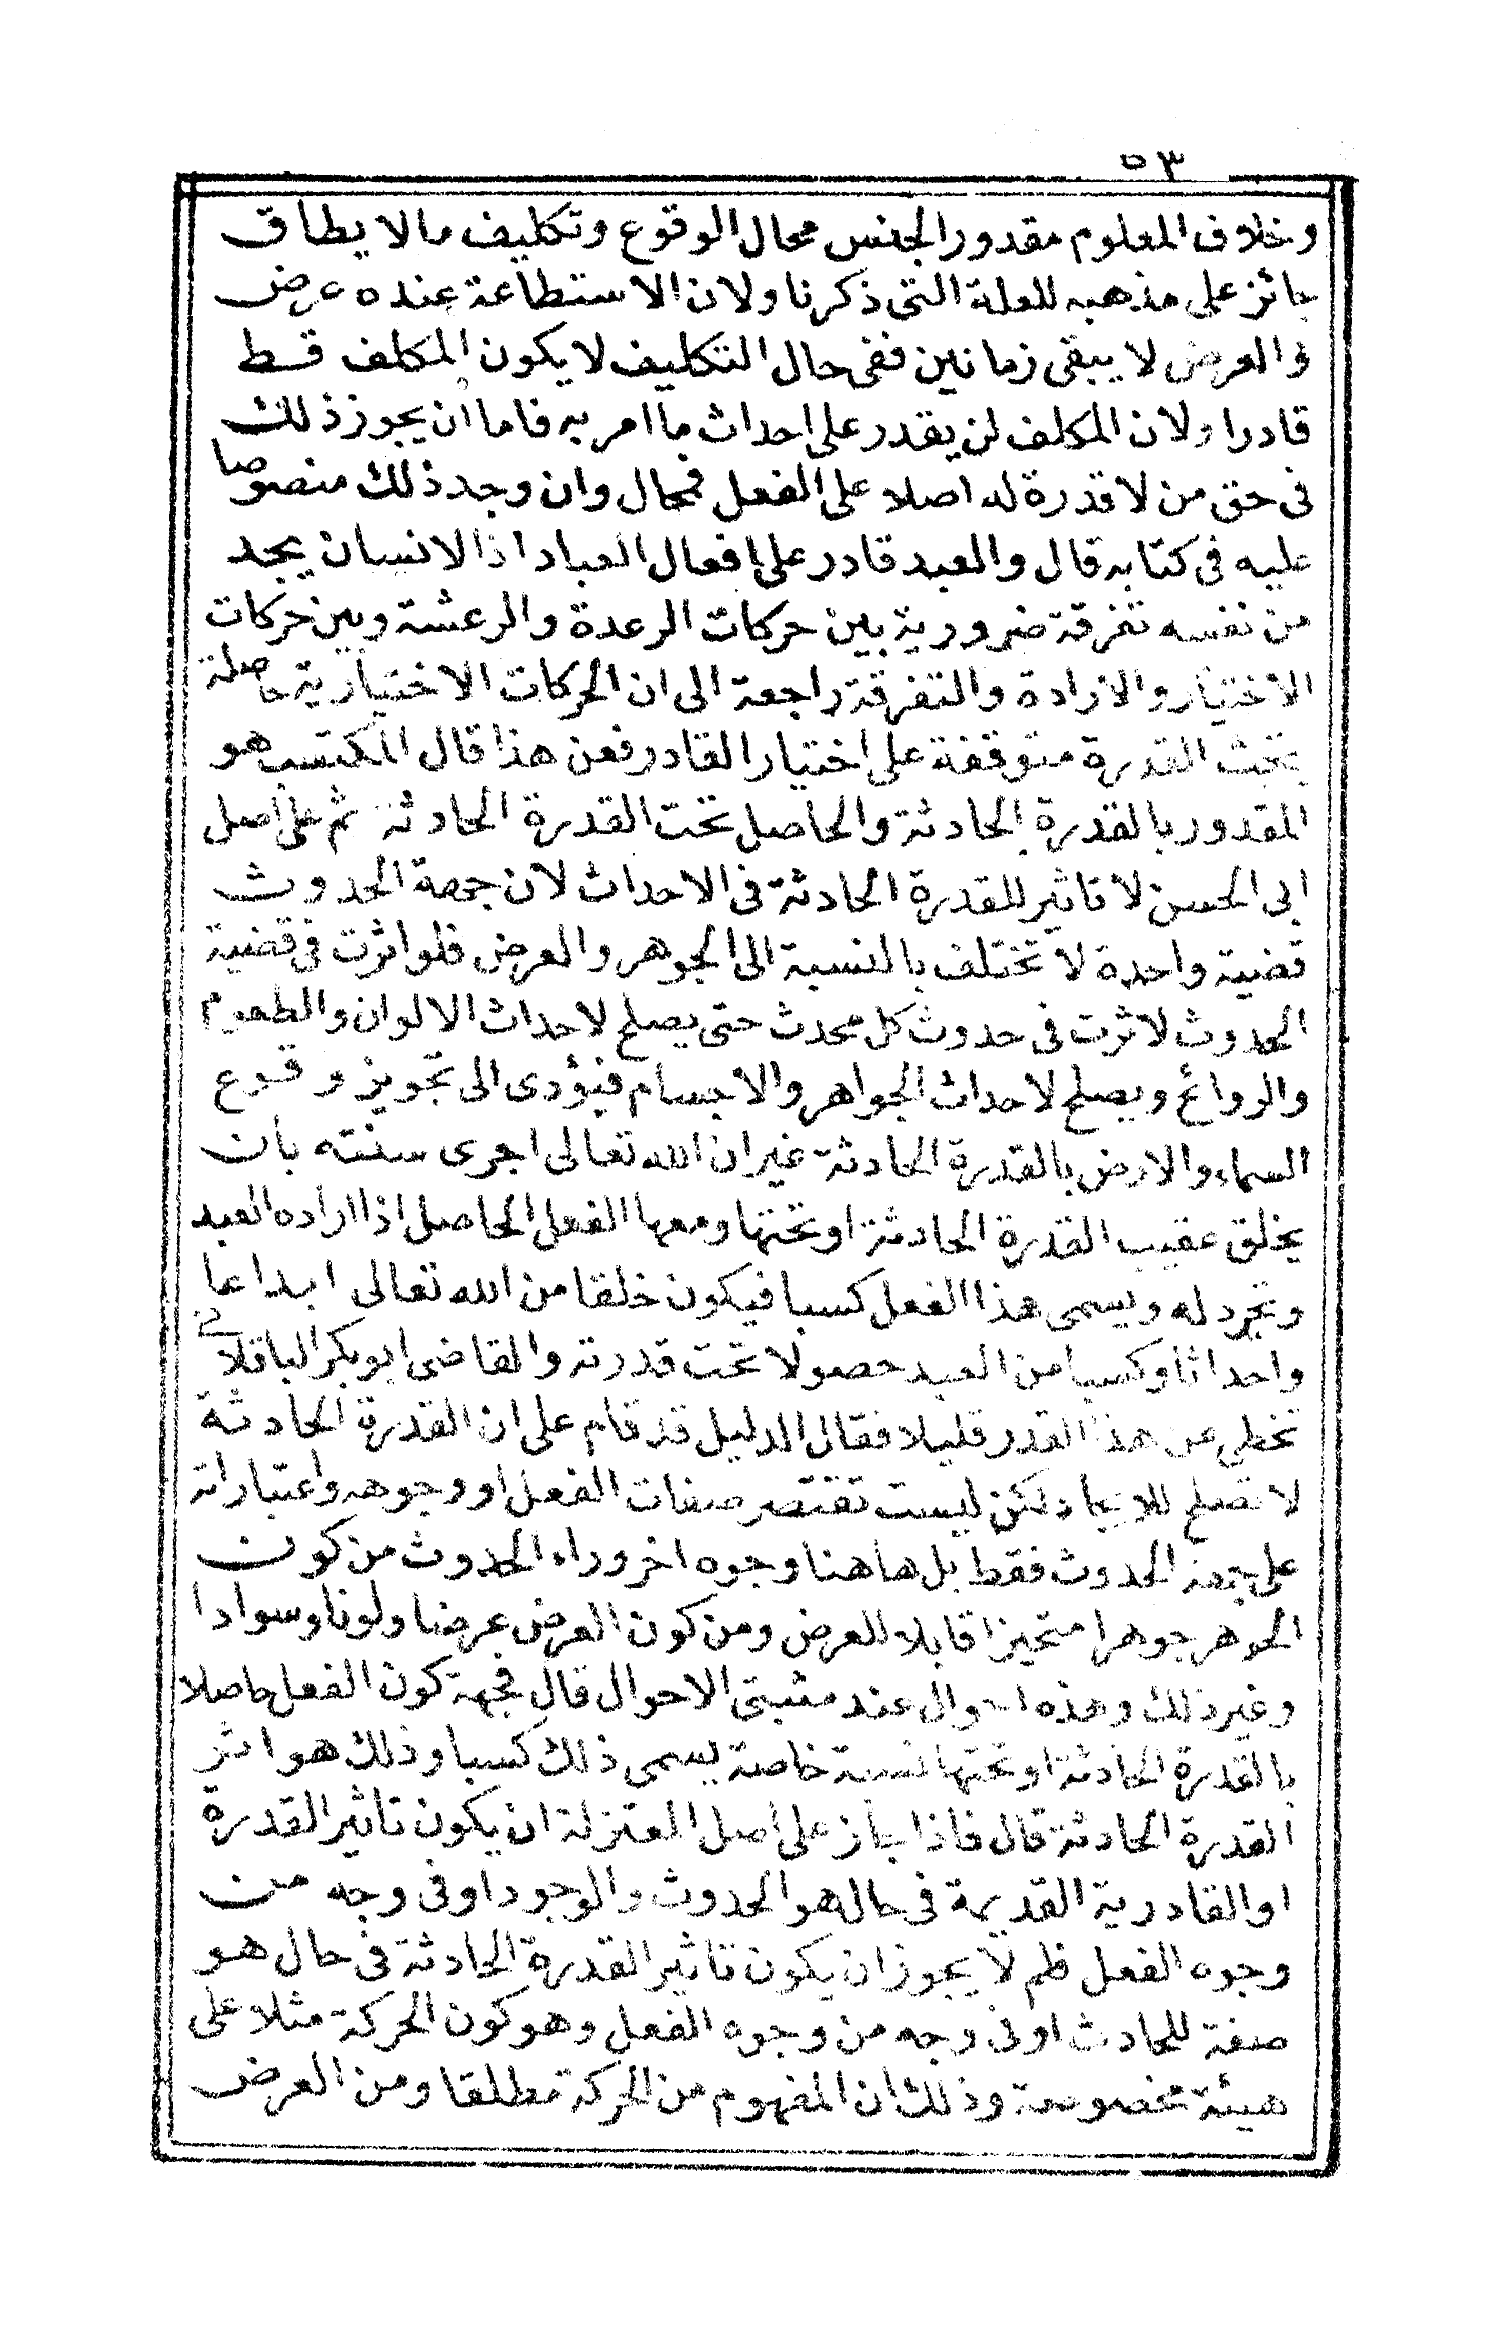 ٥٣
وخلاف المعلوم مقدور الجنس محال الوقوع وتكليف ما لا يطاق
جائز على مذهبه للعلة التى ذكرنا ولان الاستطاعة عنده عرض
والعرض لا يبقى زمانين ففى حال التكليف لا يكون المكلف قط
قادرا ولان المكلف لن يقدر على احداث ما امر به فاما ان يجوز ذلك
فى حق من لا قدرة له اصلا على الفعل فمحال وان وجد ذلك منصوصا
عليه فى كتابه قال والعبد قادر على افعال العباد اذ الانسان يجد
من نفسه تفرقة ضرورية بين حركات الرعدة والرعشة وبين حركات
الاختيار والارادة والتفرقة راجعة الى ان الحركات الاختيارية حاصلة
تحت القدرة متوقفة على اختيار القادر فعن هذا قال المكتسب هو
المقدور بالقدرة الحادثة والحاصل تحت القدرة الحادثة ثم على اصل
ابى الحسن لا تاثير للقدرة الحادثة فى الاحداث لان جهة الحدوث
قضية واحدة لا تختلف بالنسبة الى الجوهر والعرض فلو اثرت فى قضية
الحدوث لاثرت فى حدوث كل محدث حتى يصلح لاحداث الالوان والطعوم
والروائح ويصلح لاحداث الجواهر والاجسام فيؤدى الى تجويز وقوع
السماء والارض بالقدرة الحادثة غير ان الله تعالى اجرى سنته بان
يخلق عقيب القدرة الحادثة او تحتها ومعها الفعل الحاصل اذا اراده العبد
وتجرد له ويسمى هذا الفعل كسبا فيكون خلقا من الله تعالى ابداعا
واحداثا وكسبا من العبد حصولا تحت قدرته والقاضى ابو بكر الباقلانى
تخطى عن هذا القدر قليلا فقال الدليل قد قام على ان القدرة الحادثة
لا تصلح للايجاد لكن ليست تقتصر صفات الفعل او وجوهه واعتباراته
على جهة الحدوث فقط بل هاهنا وجوه اخر وراء الحدوث من كون
الجوهر جوهرا متحيزا قابلا للعرض ومن كون العرض عرضا ولونا وسوادا
وغير ذلك وهذه احوال عند مثبتى الاحوال قال فجهة كون الفعل حاصلا
بالقدرة الحادثة او تحتها نسبة خاصة يسمى ذلك كسبا وذلك هو اثر
القدرة الحادثة قال فاذا جاز على اصل المعتزلة ان يكون تاثير القدرة
او القادرية القديمة فى حال هو الحدوث والوجود او فى وجه من
وجوه الفعل فلم لا يجوز ان يكون تاثير القدرة الحادثة فى حال هو
صفة للحادث او فى وجه من وجوه الفعل وهو كون الحركة مثلا على
هيئة مخصوصة وذلك ان المفهوم من الحركة مطلقا ومن العرض